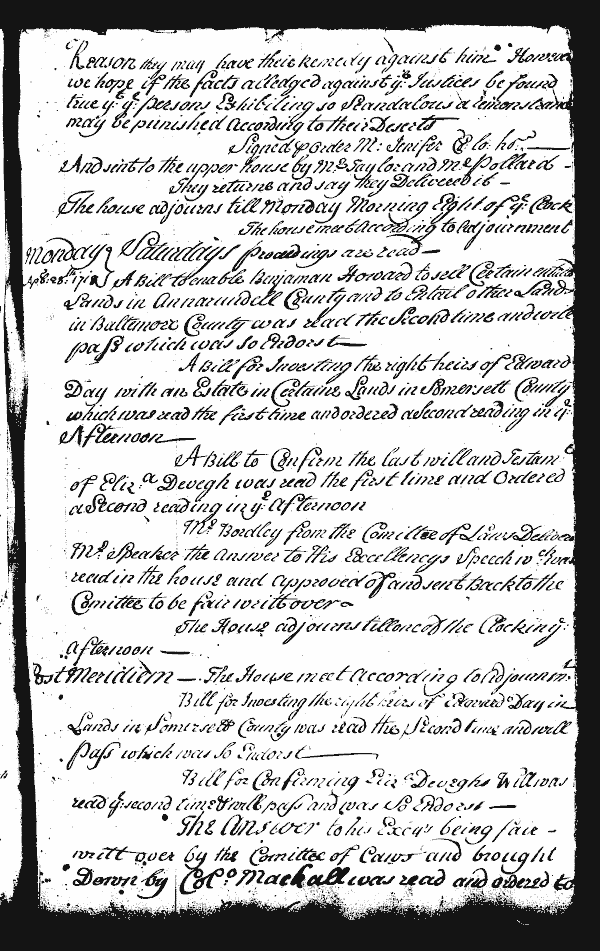 Reason they may have their Remedy against him However
we hope if the facts alledged against ye Justices be found
true yt ye persons Exhibiting so Scandalous a
may be punished According to their Deserts
Signed p order M: Jenifer Cl lo. ho.
And sent to the upper house by Mr Taylor and Mr Pollard
They returne and say they Delivered it
The house adjourns till Monday Morning Eight of ye Clock
The house meet According to Adjournment
Monday Saturdays proceedings are read
A Bill to enable Benjaman Howard to sell Certain entailed
Lands in Annarundell County and to Entail other Lands
in Baltemore County was read the Second time and will
pass which was so Endorst
A Bill for Investing the right heirs of Edward
Day with an Estate in Certaine Lands in Somersett County
which was read the first time and ordered a Second reading in ye
Afternoon
A Bill to Confirm the last will and Testamt
of Eliz.a Devegh was read the first time and Ordered
a Second reading in ye Afternoon
Mr Bordley from the Comittee of Laws Delivers
Mr Speaker the Answer to His Excellencys Speech wch was
read in the house and approved of and sent Back to the
Comittee to be fair writt over
The House adjourns till one of the Clock in ye
afternoon
Post Meridiem The House meet According to Adjournmt
Bill for Investing the right heirs of Edward Day in
Lands in Somersett County was read the Second time and will
Pass which was So Endorst
Bill for Confirming Eliz.a Deveghs Will was
read ye second time & will pass and was So Endorst
The Answer to his Excys being fair
writt over by the Comittee of Laws and brought
Down by Col.o Mackall was read and ordered to